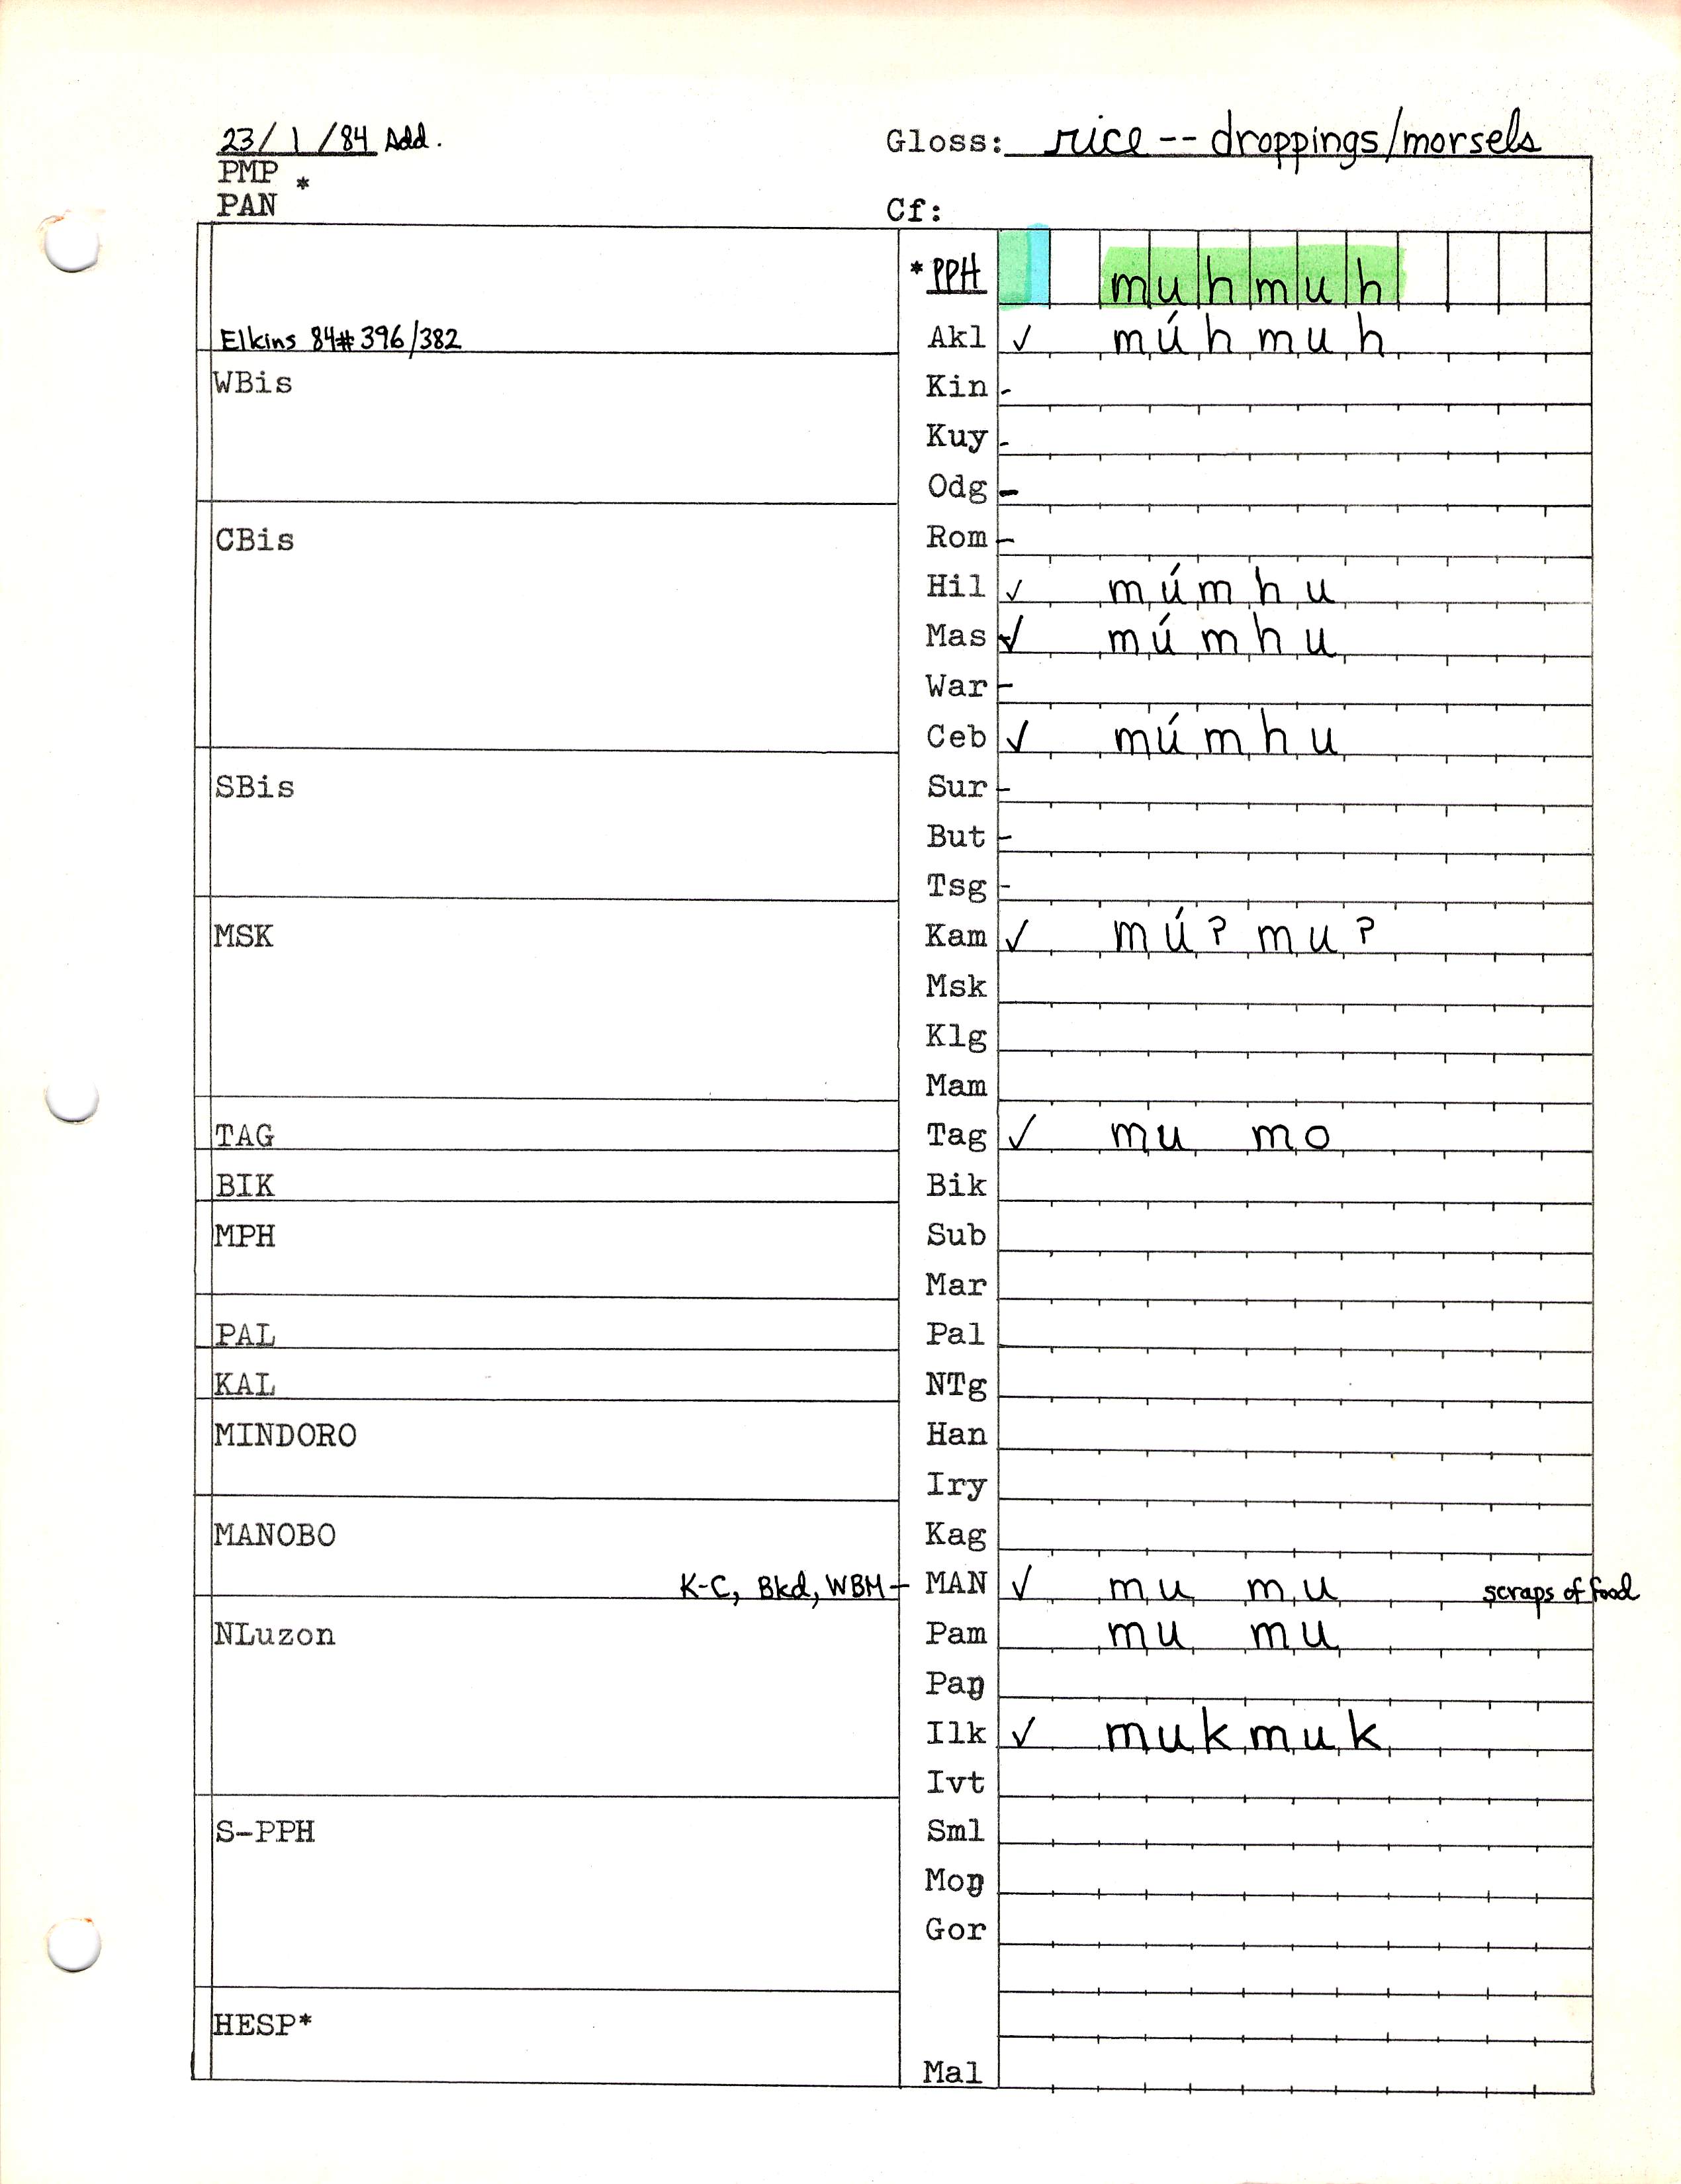 23/1/84 Add. Gloss: rice -- droppings/morsels
PMP *
PAN Cf:
*PPH muhmuh
Elkins 84#396/382 Akl ✓ múhmuh
WBis Kin -
Kuy -
Odg -
CBis Rom -
Hil ✓ múmhu
Mas ✓ múmhu
War -
Ceb ✓ múmhu
SBis Sur -
But -
Tsg -
MSK Kam ✓ múʔmuʔ
Msk
Klg
Mam
TAG Tag ✓ mu mo
BIK Bik
MPH Sub
Mar
PAL Pal
KAL NTg
MINDORO Han
Iry
MANOBO Kag
K-C, Bkd, WBM - MAN ✓ mu mu scraps of food
NLuzon Pam mu mu
Paŋ
Ilk ✓ mukmuk
Ivt
S-PPH Sml
Moŋ
Gor
HESP*
Mal